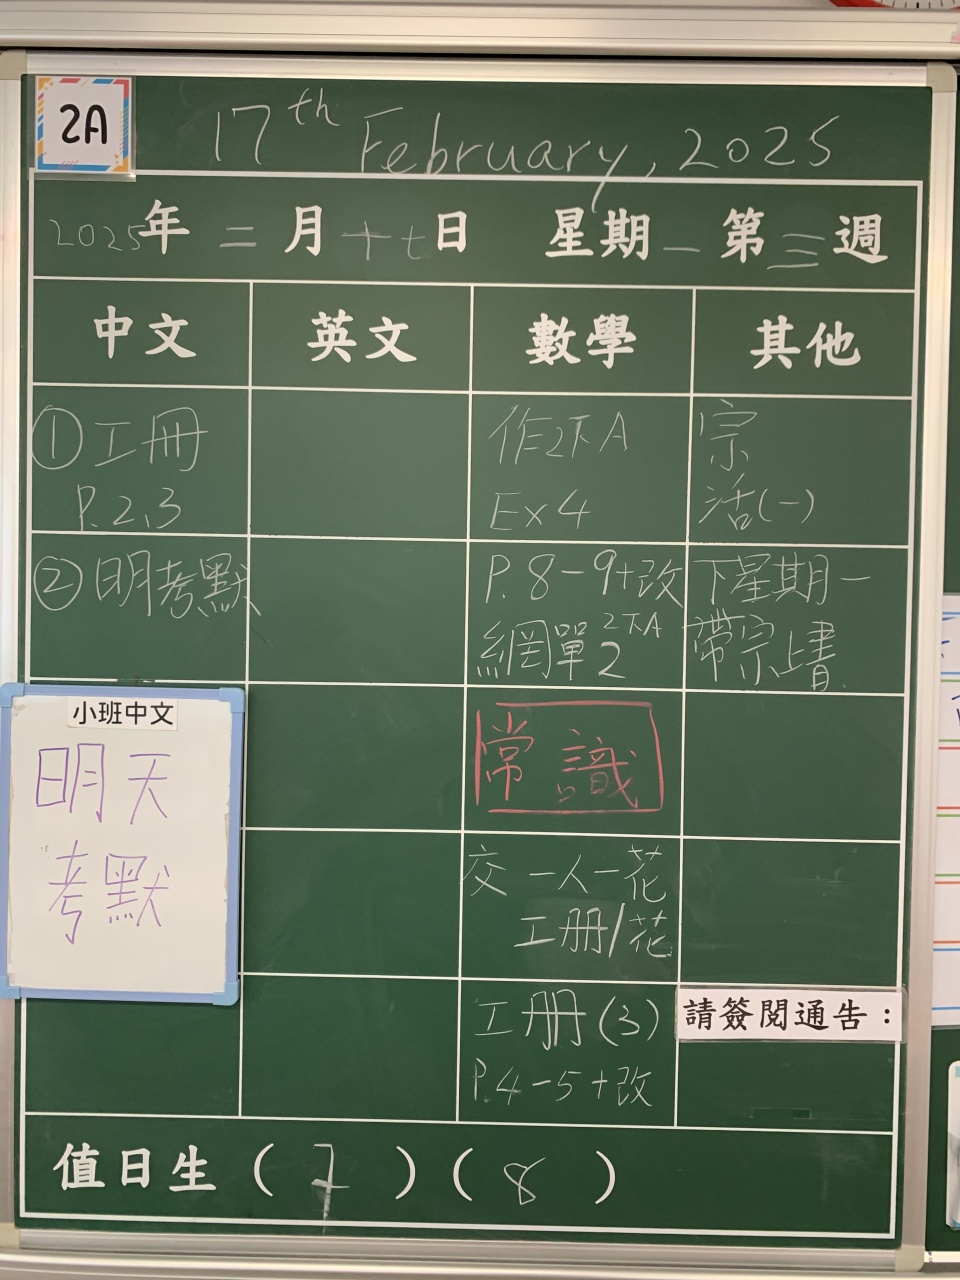 2A
17th February, 2025
2025年二月十七日 星期一第三週
中文
英文
數學
其他
①工冊
P.2,3
②明考默
小班中文
明天
考默
作2下A
Ex4
P.8-9+改
網單2下A 2
常識
交一人一花
工册/花
工册(3)
P.4-5+改
宗
活(一)
下星期一
帶宗書
請簽閱通告：
值日生（7）（8）